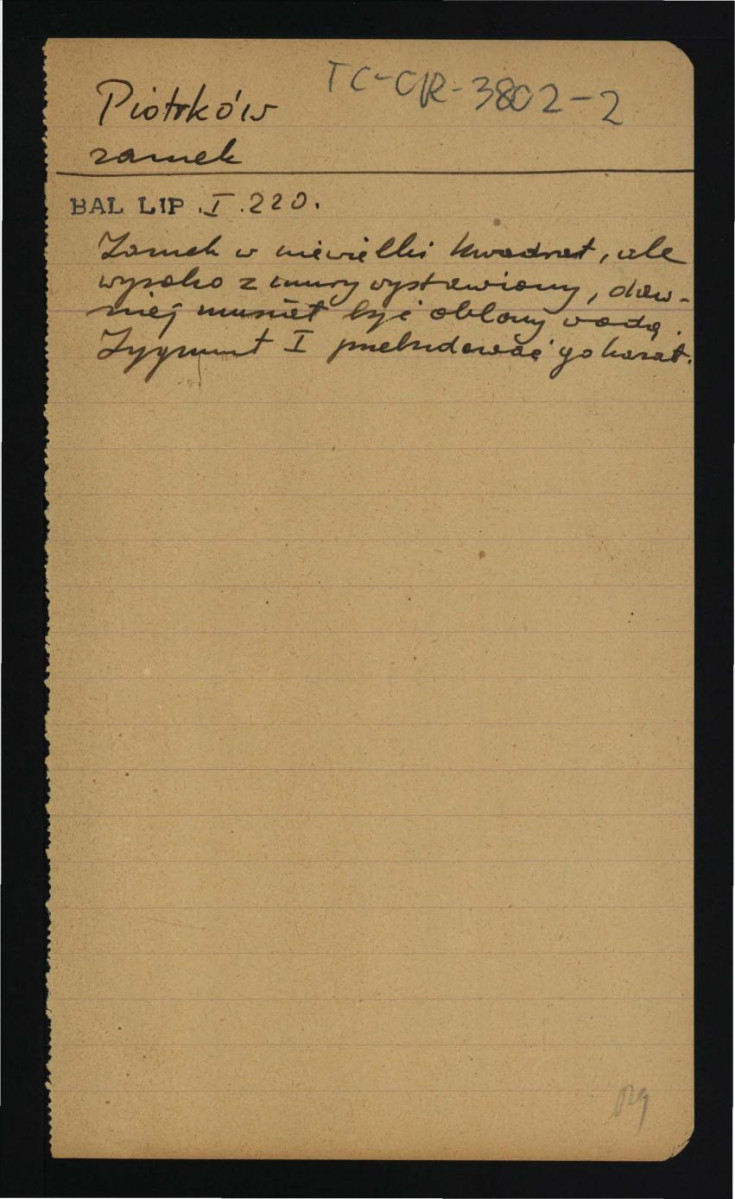 TC-CR-3802-2
Piotrków
zamek
BAL LIP. I. 220.
Zamek w niewielki kwadrat, ale
wysoko z mury wystawiony, daw-
niej musiał być oblany wodą.
Zygmunt I przebudować go kazał.